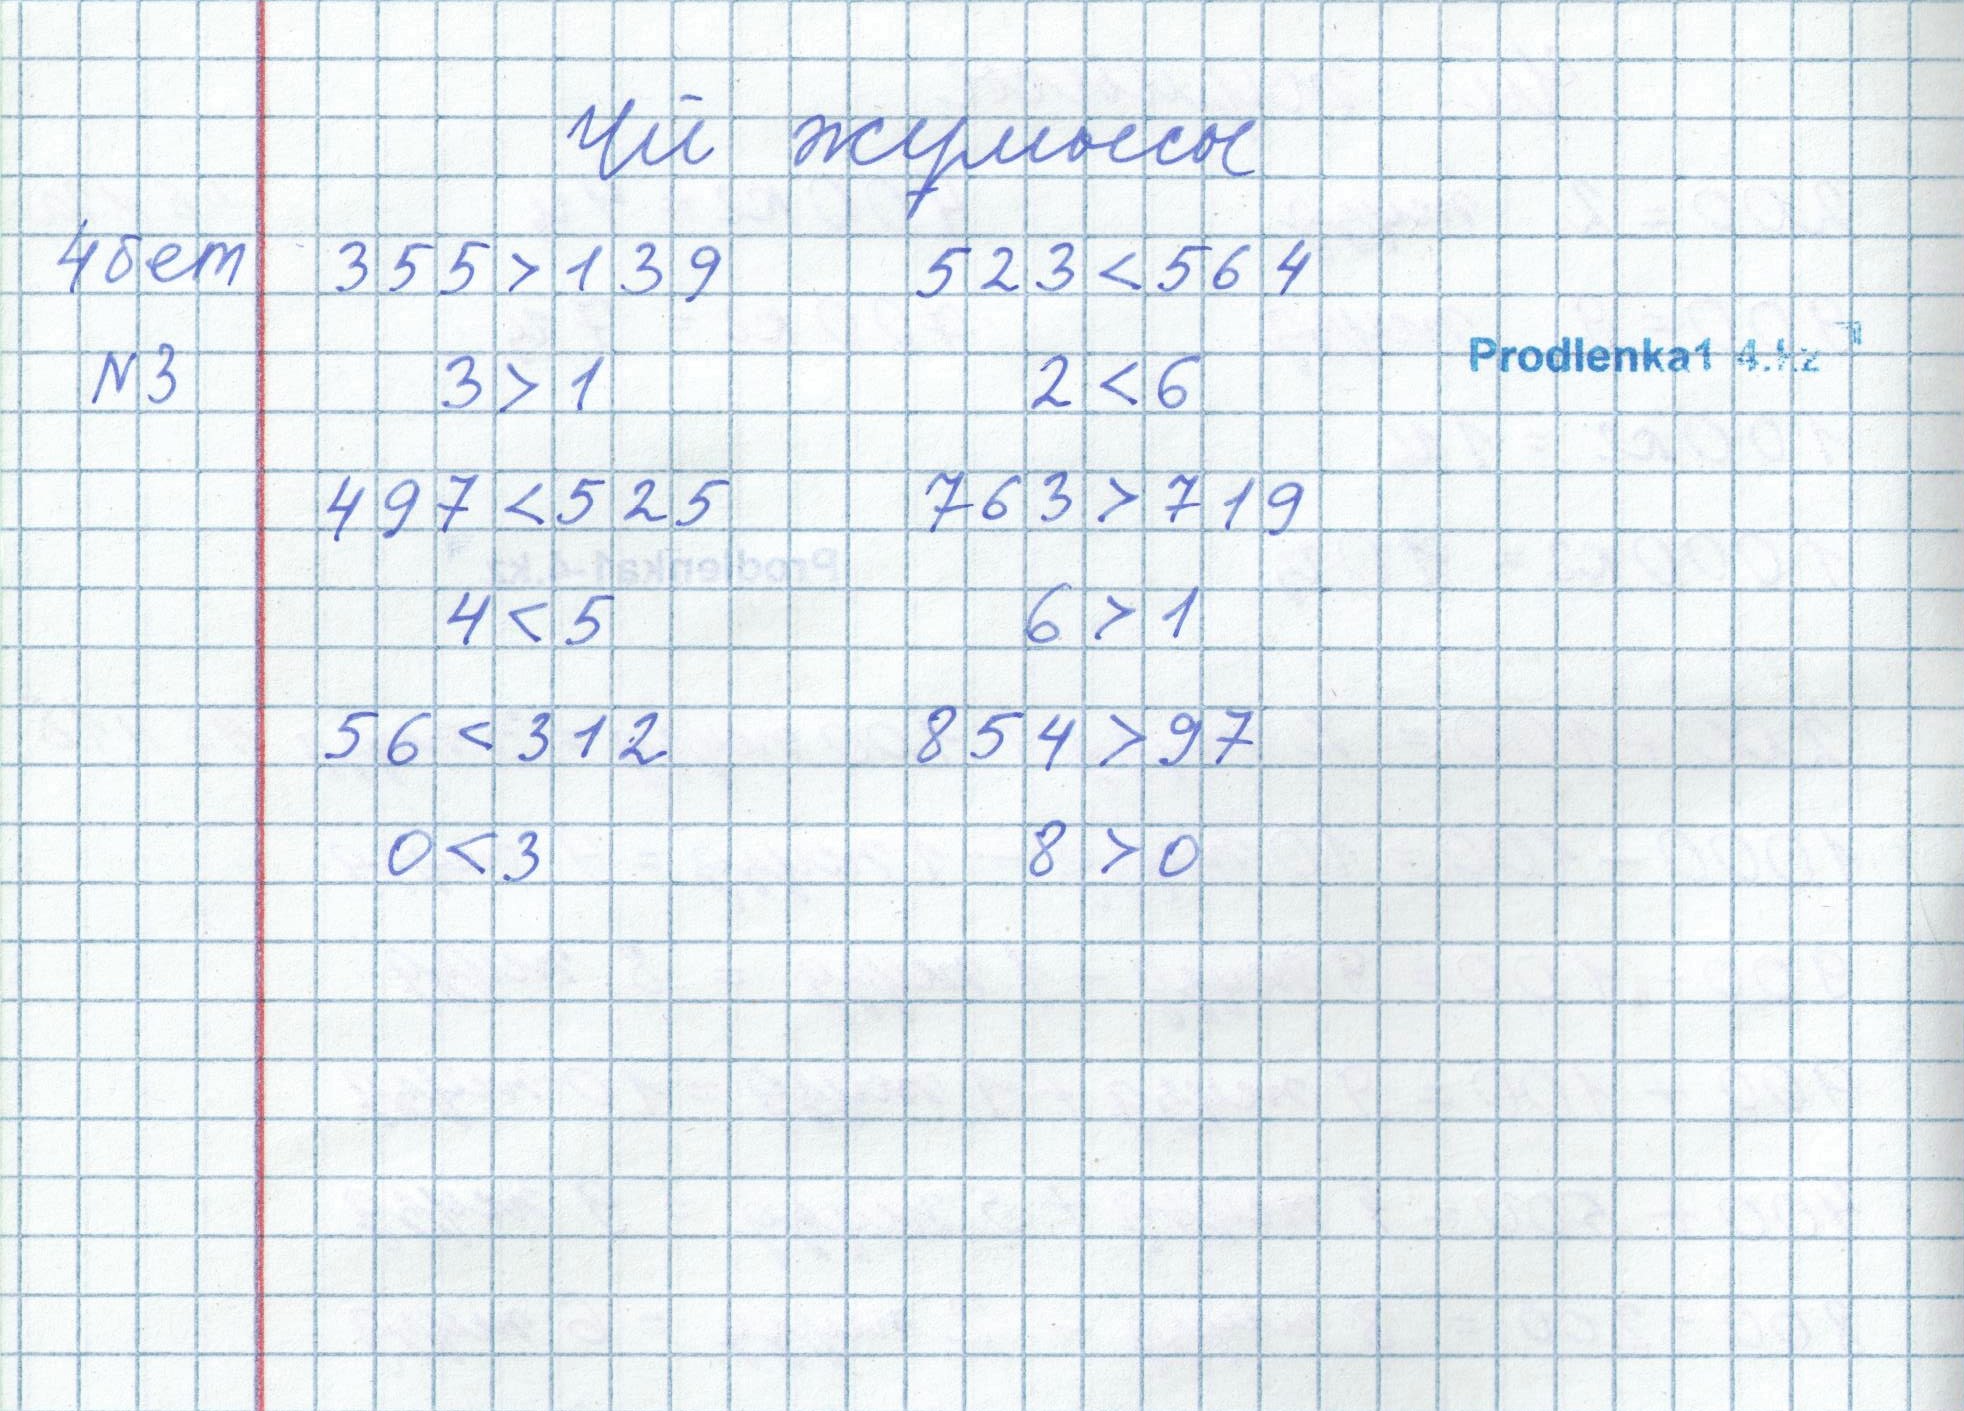 Үй жұмысы
4 бет 355 > 139 523 < 564
N3 3 > 1 2 < 6
Prodlenka1 4.kz
497 < 525 763 > 719
4 < 5 6 > 1
56 < 312 854 > 97
0 < 3 8 > 0